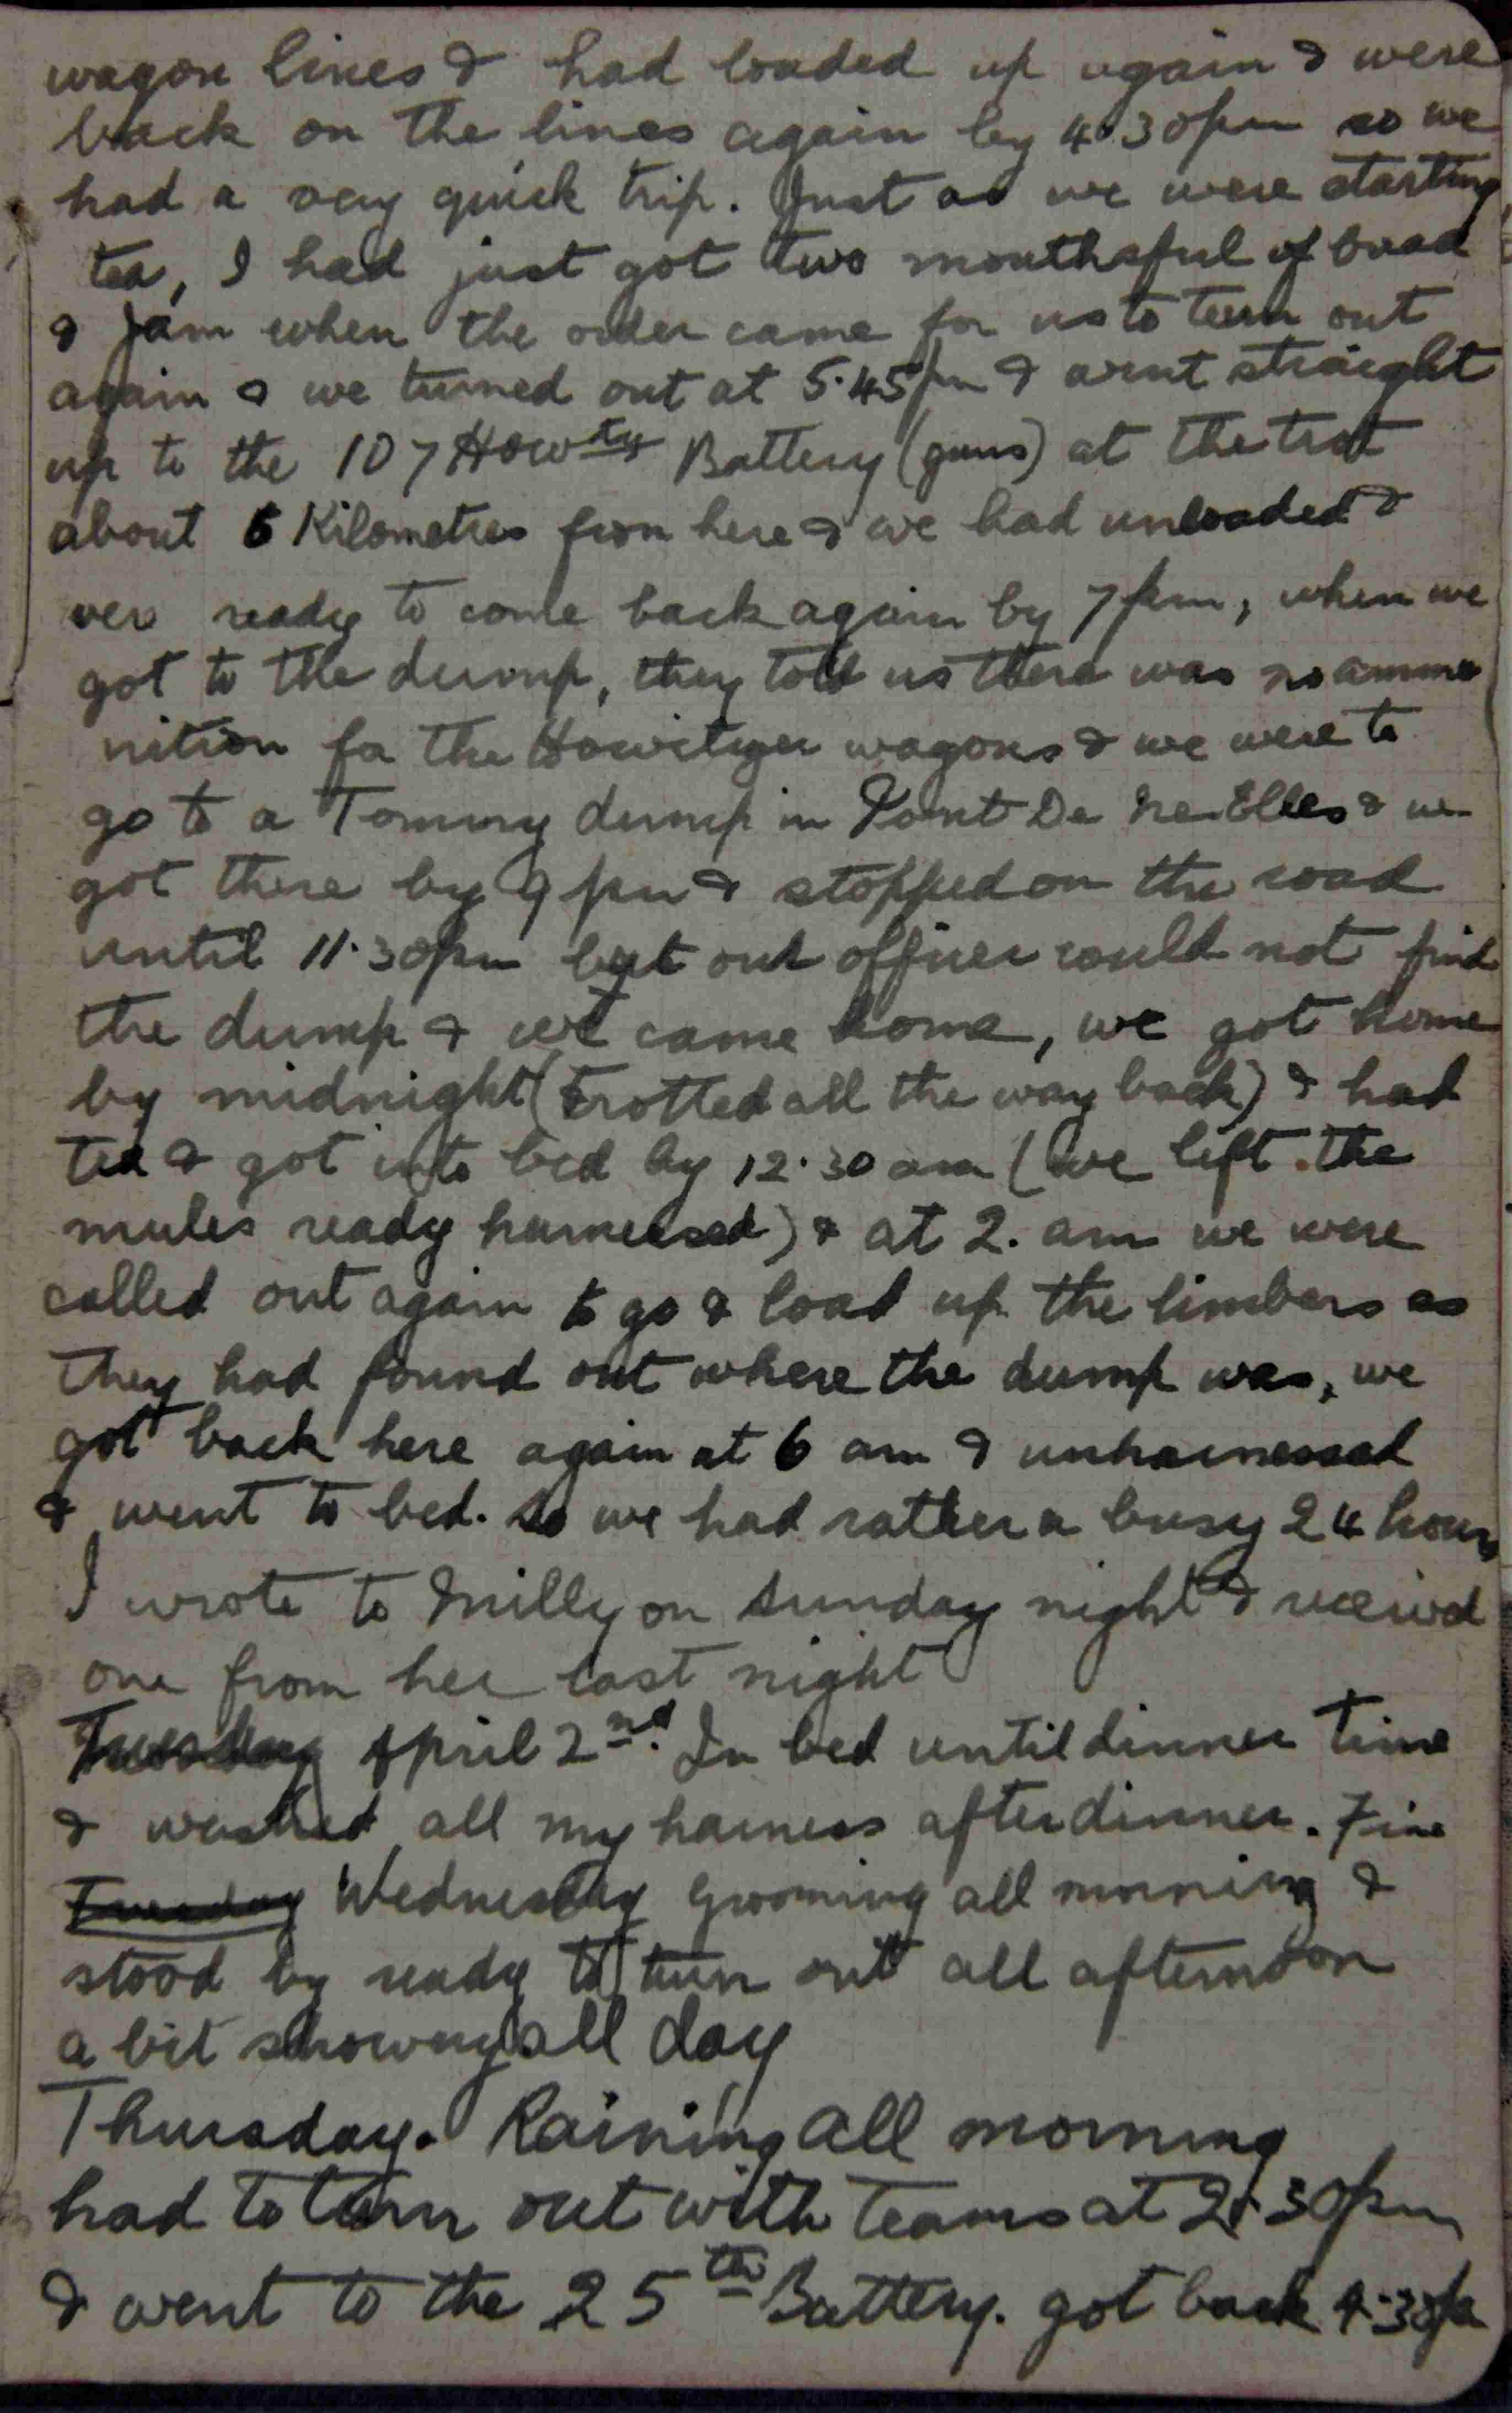 wagon lines & had loaded up again & were
back on the lines again by 4.30pm so we
had a very quick trip. Just as we were starting
tea, I had just got two mouthsful of bread
& jam when the order came for us to turn out
again & we turned out at 5.45pm & went straight
up to the 107 Howtzr Battery (guns) at the trot
about 6 Kilometres from here & we had unloaded &
were ready to come back again by 7pm, when we
got to the dump, they told us there was no ammu
nition for the Howitzer wagons & we were to
go to a Tommy dump in Pont De & we
got there by 9 pm & stopped on the road
until 11.30pm but our officer could not find
the dump & we came home, we got home
by midnight (trotted all the way back) & had
tea & got into bed by 12.30 am (we left the
mules ready harnessed) & at 2. am we were
called out again to go & load up the limbers as
they had found out where the dump was, we
got back here again at 6 am & unharnessed
& went to bed. So we had rather a busy 24 hours
I wrote to Milly on Sunday night & received
one from her last night
Tuesday April 2nd. In bed until dinner time
& washed all my harness after dinner. Fine
Tuesday Wednesday Grooming all morning &
stood by ready to turn out all afternoon
a bit showery all day
Thursday. Raining all morning
had to turn out with teams at 2.30pm
& went to the 25th Battery. got back 4.30pm